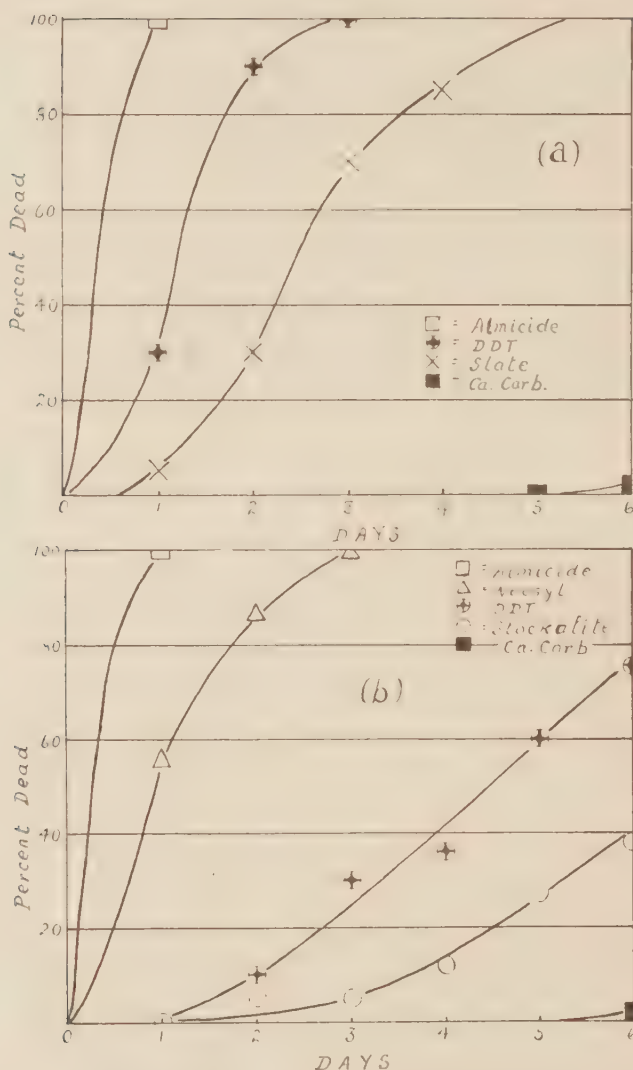 100
80
60
40
20
Percent Dead
(a)
= Almicide
= DDT
= Slate
= Ca. Carb.
0 1 2 3 4 5 6
DAYS
100
80
60
40
20
Percent Dead
= Almicide
= Neosyl
= DDT
= Stockalite
Ca. Carb
(b)
0 1 2 3 4 5 6
DAYS